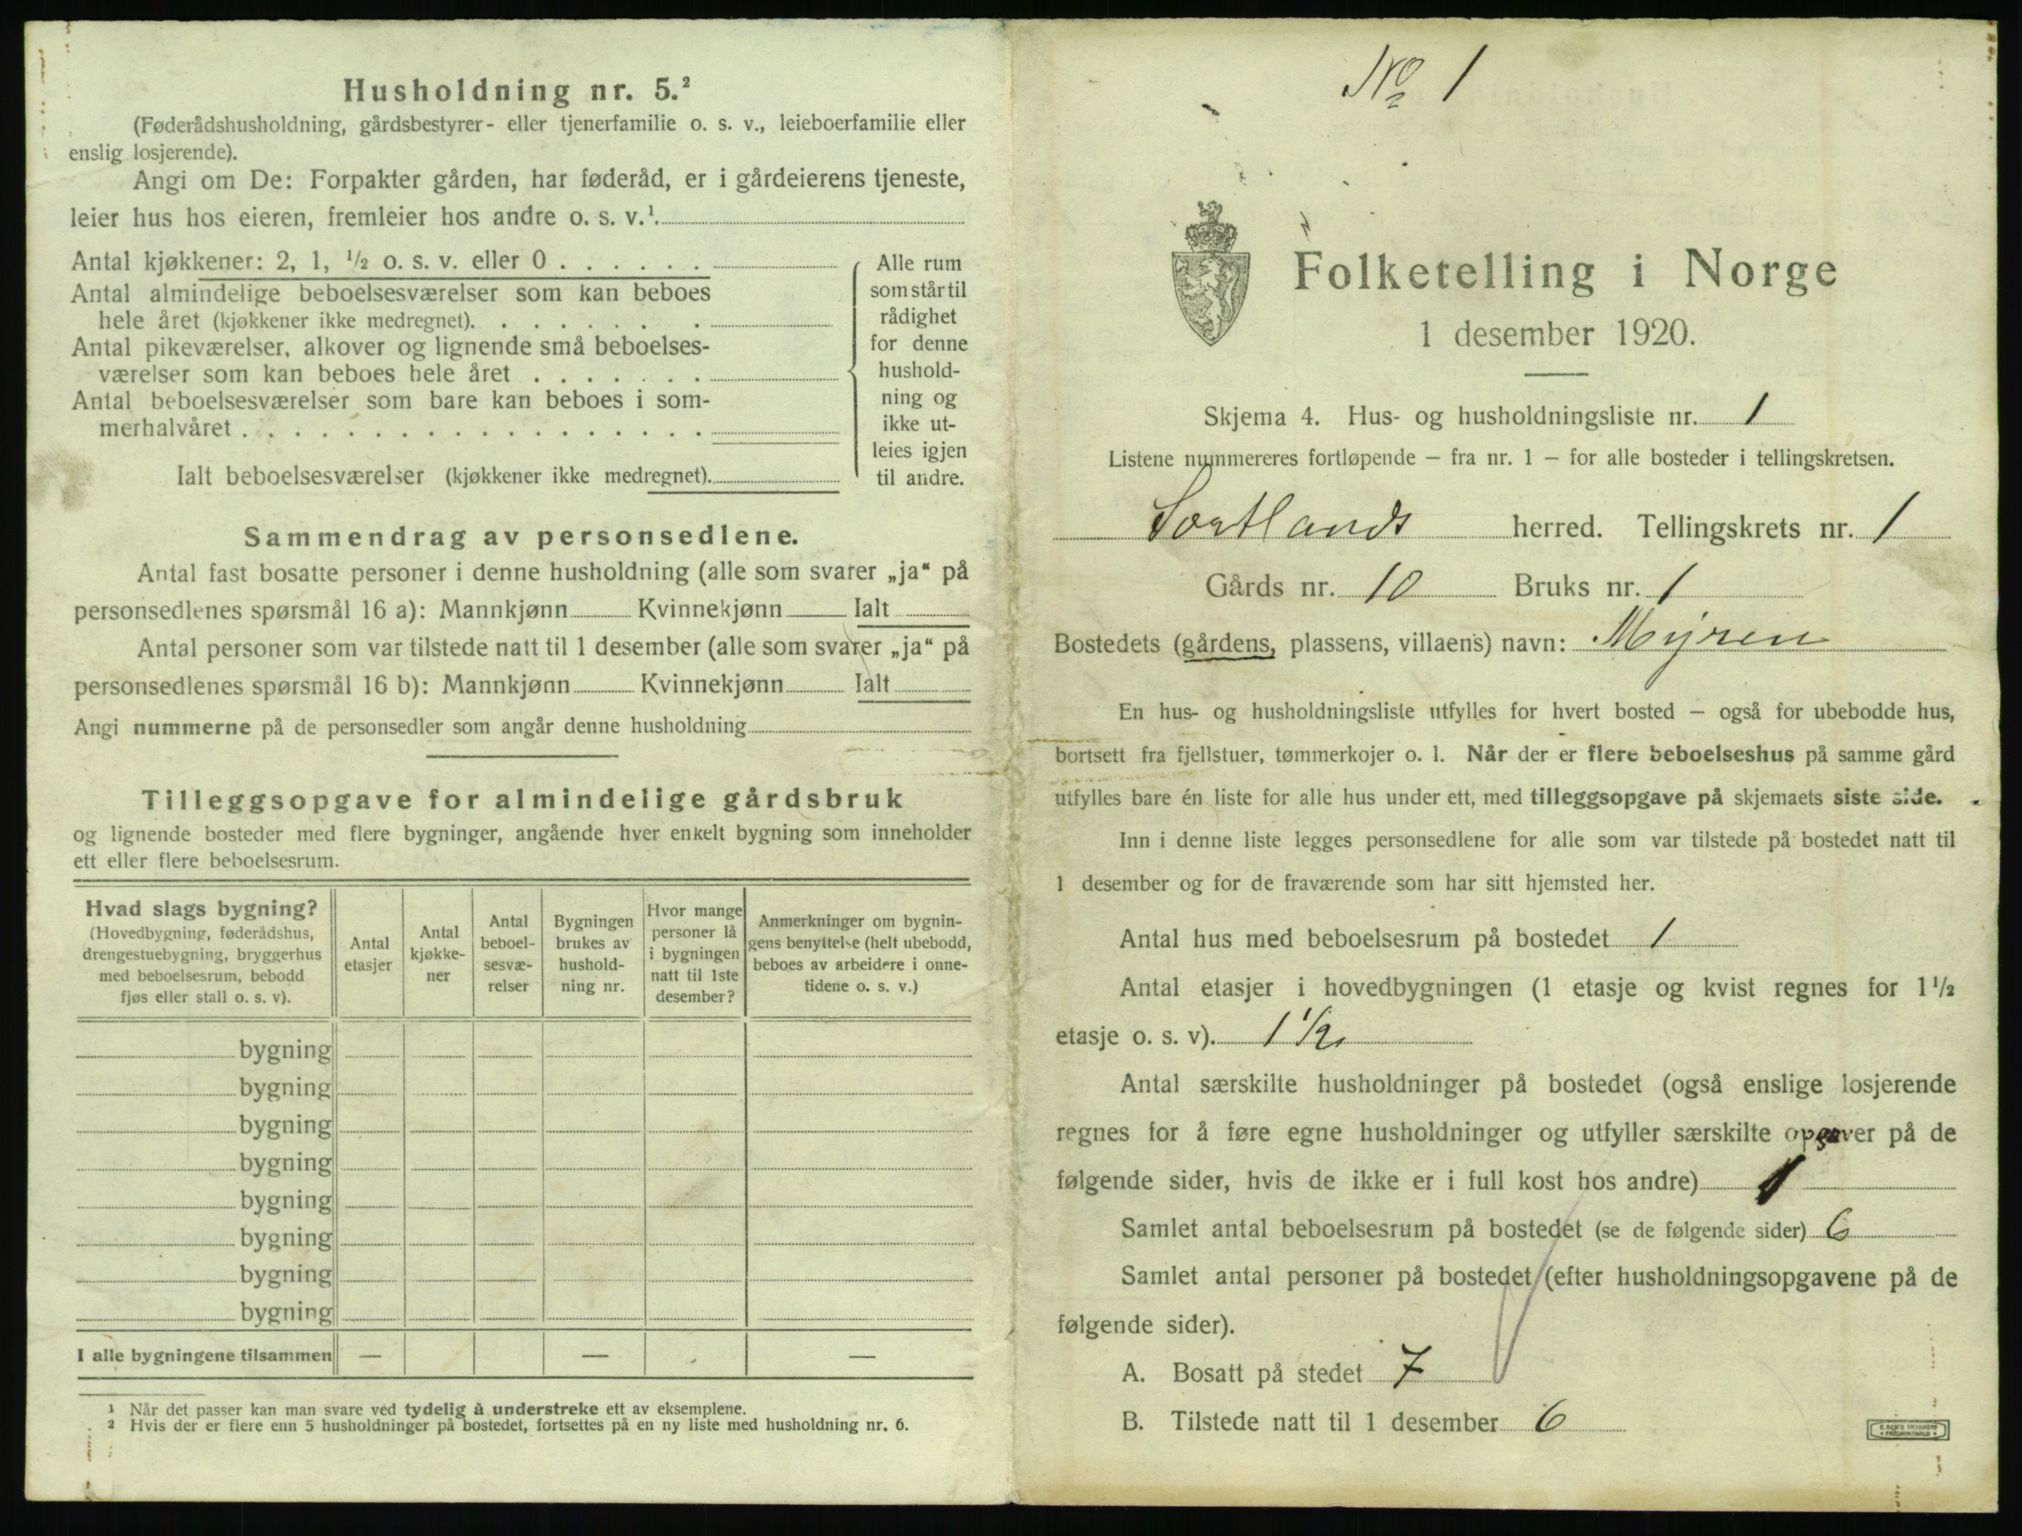 Husholdning nr. 5.²
(Føderådshusholdning, gårdsbestyrer- eller tjenerfamilie o. s. v., leieboerfamilie eller
enslig losjerende).
Angi om De: Forpakter gården, har føderåd, er i gårdeierens tjeneste,
leier hus hos eieren, fremleier hos andre o. s. v.¹.
Antal kjøkkener: 2, 1, ½ o. s. v. eller 0 . . . . . .
Antal almindelige beboelsesværelser som kan beboes
hele året (kjøkkener ikke medregnet). . . . . . . .
Antal pikeværelser, alkover og lignende små beboelses-
værelser som kan beboes hele året . . . . . . .
Antal beboelsesværelser som bare kan beboes i som-
merhalvåret . . . . . . . . . . . . . . . . . .
Ialt beboelsesværelser (kjøkkener ikke medregnet).
Alle rum
som står til
rådighet
for denne
hushold-
ning og
ikke ut-
leies igjen
til andre.
Sammendrag av personsedlene.
Antal fast bosatte personer i denne husholdning (alle som svarer „ja“ på
personsedlenes spørsmål 16 a): Mannkjønn Kvinnekjønn Ialt
Antal personer som var tilstede natt til 1 desember (alle som svarer „ja“ på
personsedlenes spørsmål 16 b): Mannkjønn Kvinnekjønn Ialt
Angi nummerne på de personsedler som angår denne husholdning
Tilleggsopgave for almindelige gårdsbruk
og lignende bosteder med flere bygninger, angående hver enkelt bygning som inneholder
ett eller flere beboelsesrum.
Hvad slags bygning?
(Hovedbygning, føderådshus,
drengestuebygning, bryggerhus
med beboelsesrum, bebodd
fjøs eller stall o. s. v).
Antal
etasjer
Antal
kjøkke-
ner
Antal
beboel-
sesvæ-
relser
Bygningen
brukes av
hushold-
ning nr.
Hvor mange
personer lå
i bygningen
natt til 1ste
desember?
Anmerkninger om bygnin-
gens benyttelse (helt ubebodd,
beboes av arbeidere i onne-
tidene o. s. v.)
bygning
bygning
bygning
bygning
bygning
bygning
bygning
bygning
I alle bygningene tilsammen — — —
¹ Når det passer kan man svare ved tydelig å understreke ett av eksemplene.
² Hvis der er flere enn 5 husholdninger på bostedet, fortsettes på en ny liste med husholdning nr. 6.
No 1
Folketelling i Norge
1 desember 1920.
Skjema 4. Hus- og husholdningsliste nr. 1
Listene nummereres fortløpende – fra nr. 1 – for alle bosteder i tellingskretsen.
Sortlands herred. Tellingskrets nr. 1
Gårds nr. 10 Bruks nr. 1
Bostedets (gårdens, plassens, villaens) navn: Myren
En hus- og husholdningsliste utfylles for hvert bosted – også for ubebodde hus,
bortsett fra fjellstuer, tømmerkojer o. l. Når der er flere beboelseshus på samme gård
utfylles bare én liste for alle hus under ett, med tilleggsopgave på skjemaets siste side.
Inn i denne liste legges personsedlene for alle som var tilstede på bostedet natt til
1 desember og for de fraværende som har sitt hjemsted her.
Antal hus med beboelsesrum på bostedet 1
Antal etasjer i hovedbygningen (1 etasje og kvist regnes for 1½
etasje o. s. v). 1½
Antal særskilte husholdninger på bostedet (også enslige losjerende
regnes for å føre egne husholdninger og utfyller særskilte opgaver på de
følgende sider, hvis de ikke er i full kost hos andre) 1
Samlet antal beboelsesrum på bostedet (se de følgende sider) 6
Samlet antal personer på bostedet (efter husholdningsopgavene på de
følgende sider).
A. Bosatt på stedet 7
B. Tilstede natt til 1 desember 6